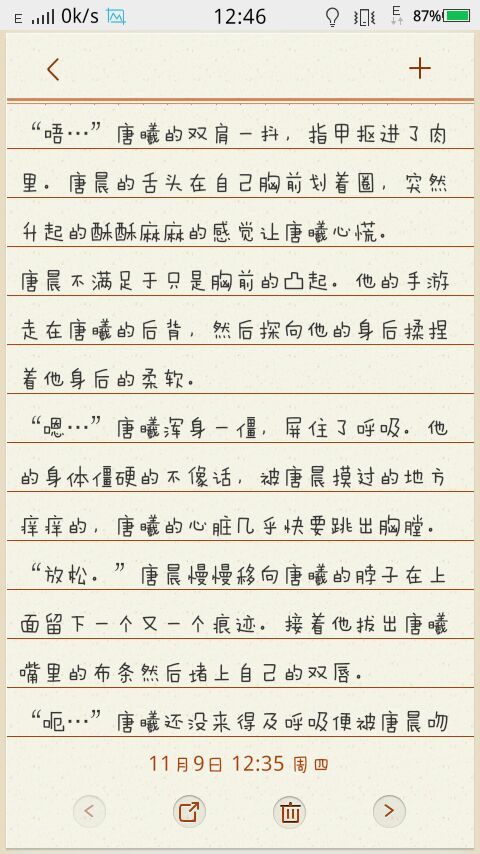 E 0k/s 12:46 E 87%
“唔…”唐曦的双肩一抖，指甲抠进了肉
里。唐晨的舌头在自己胸前划着圈，突然
升起的酥酥麻麻的感觉让唐曦心慌。
唐晨不满足于只是胸前的凸起。他的手游
走在唐曦的后背，然后探向他的身后揉捏
着他身后的柔软。
“嗯…”唐曦浑身一僵，屏住了呼吸。他
的身体僵硬的不像话，被唐晨摸过的地方
痒痒的，唐曦的心脏几乎快要跳出胸膛。
“放松。”唐晨慢慢移向唐曦的脖子在上
面留下一个又一个痕迹。接着他拔出唐曦
嘴里的布条然后堵上自己的双唇。
“呃…”唐曦还没来得及呼吸便被唐晨吻
11月9日 12:35 周四